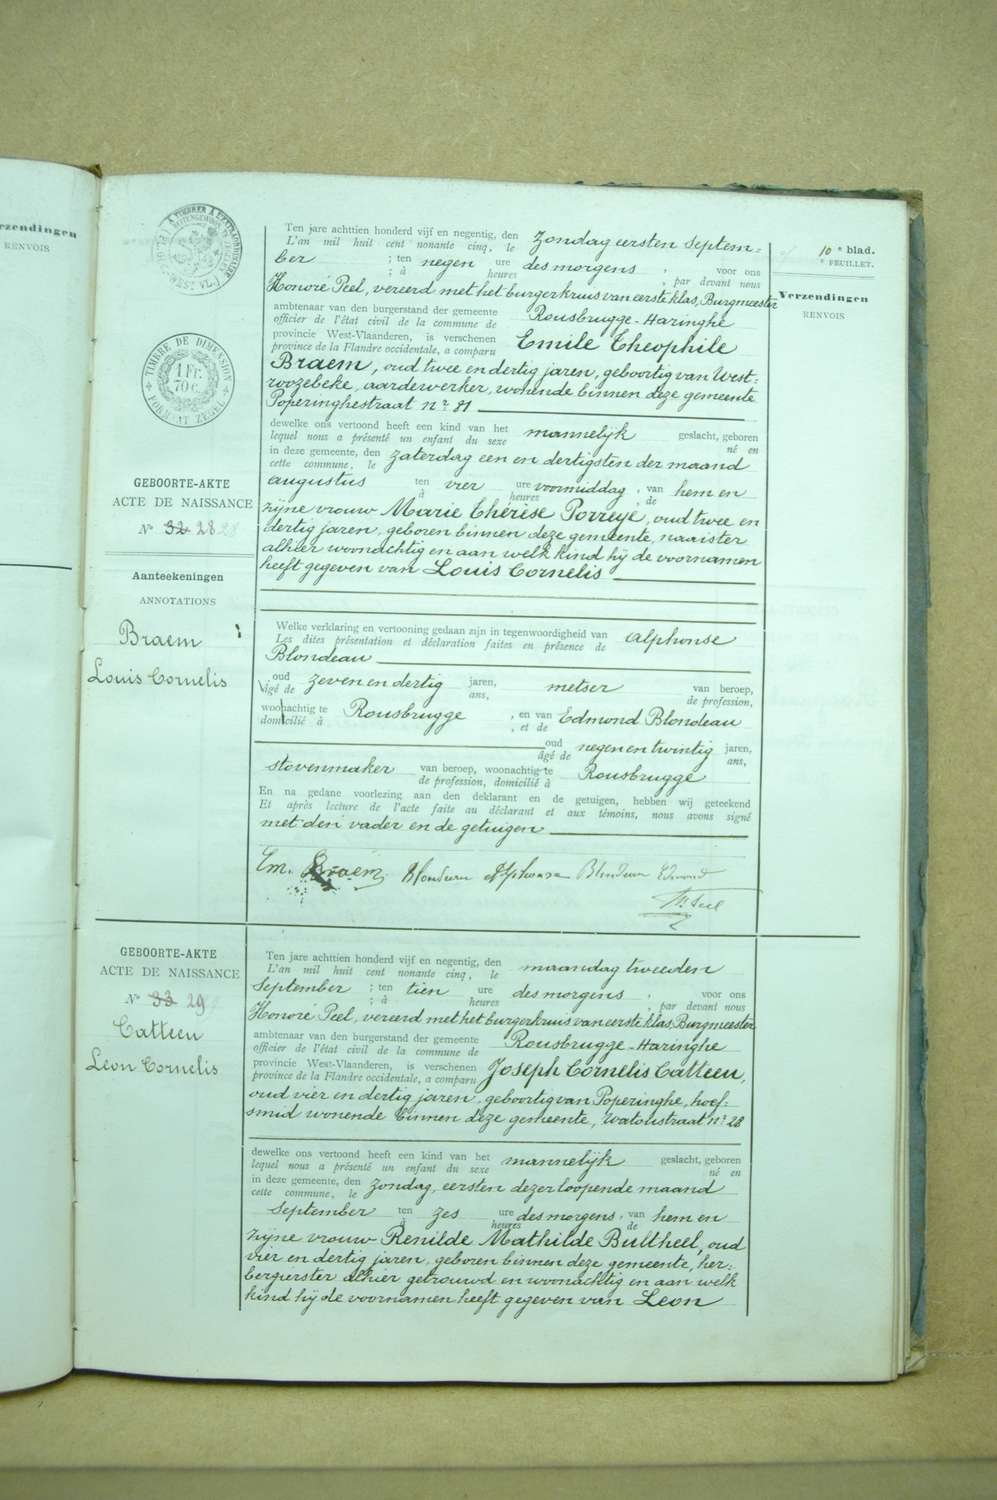 rzendingen
RENVOIS
10e blad.
e FEUILLET.
Verzendingen
RENVOIS
TIMBRE DE DIMENSION
1 Fr.
70 c.
FORMAAT ZEGEL
GEBOORTE-AKTE
ACTE DE NAISSANCE
No 32 28 28
Aanteekeningen
ANNOTATIONS
Braem
Louis Cornelis
Ten jare achttien honderd vijf en negentig, den Zondag eersten Septem-
L'an mil huit cent nonante cinq, le
ber ; ten negen ure des morgens , voor ons
; à heures , par devant nous
Honoré Peel, vereerd met het burgerkruis van eerste klas, Burgmeester
ambtenaar van den burgerstand der gemeente Rousbrugge-Haringhe
officier de l'état civil de la commune de
provincie West-Vlaanderen, is verschenen Emile Theophile
province de la Flandre occidentale, a comparu
Braem, oud twee en dertig jaren, geboortig van West-
roozebeke, aardewerker, wonende binnen deze gemeente
Poperinghestraat no 81
dewelke ons vertoond heeft een kind van het mannelijk geslacht, geboren
lequel nous a présenté un enfant du sexe né en
in deze gemeente, den zaterdag een en dertigsten der maand
cette commune, le
augustus ten vier ure voormiddag , van hem en
à heures , de
zijne vrouw Marie Thérèse Porreye, oud twee en
dertig jaren, geboren binnen deze gemeente, naaister
alhier woonachtig en aan welk kind hij de voornamen
heeft gegeven van Louis Cornelis
Welke verklaring en vertooning gedaan zijn in tegenwoordigheid van Alphonse
Les dites présentation et déclaration faites en présence de
Blondeau
oud zeven en dertig jaren, metser van beroep,
âgé de ans, de profession,
woonachtig te Rousbrugge , en van Edmond Blondeau
domicilié à , et de
oud negen en twintig jaren,
âgé de ans,
stovenmaker van beroep, woonachtig te Rousbrugge
de profession, domicilié à
En na gedane voorlezing aan den deklarant en de getuigen, hebben wij geteekend
Et après lecture de l'acte faite au déclarant et aux témoins, nous avons signé
met den vader en de getuigen
Em. Braem Blondeau Alphonse Blondeau Edmond
H. Peel
GEBOORTE-AKTE
ACTE DE NAISSANCE
No 33 29
Catteeu
Leon Cornelis
Ten jare achttien honderd vijf en negentig, den maandag tweeden
L'an mil huit cent nonante cinq, le
September ; ten tien ure des morgens , voor ons
; à heures , par devant nous
Honoré Peel, vereerd met het burgerkruis van eerste klas, Burgmeester
ambtenaar van den burgerstand der gemeente Rousbrugge-Haringhe
officier de l'état civil de la commune de
provincie West-Vlaanderen, is verschenen Joseph Cornelis Catteeu,
province de la Flandre occidentale, a comparu
oud vier en dertig jaren, geboortig van Poperinghe, hoef-
smid wonende binnen deze gemeente, Watoustraat no 28
dewelke ons vertoond heeft een kind van het mannelijk geslacht, geboren
lequel nous a présenté un enfant du sexe né en
in deze gemeente, den zondag, eersten dezer loopende maand
cette commune, le
September ten zes ure des morgens , van hem en
à heures de
zijne vrouw Renilde Mathilde Bultheel, oud
vier en dertig jaren, geboren binnen deze gemeente, her-
bergierster alhier getrouwd en woonachtig en aan welk
kind hij de voornamen heeft gegeven van Leon